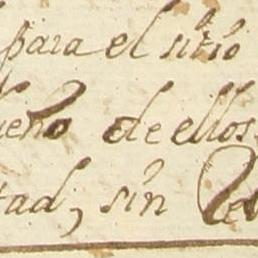 para el sitio
ueño de ellos
tad, sin